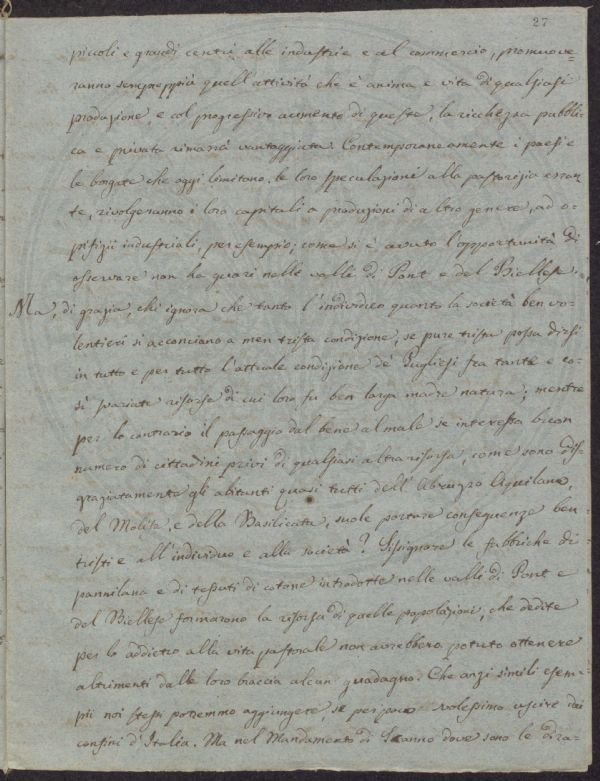 27
piccoli e grandi centri alle industrie e al commercio, promuove=
ranno sempreppiù quell'attività che è anima e vita di qualsiasi
produzione, e col progressivo aumento di queste, la ricchezza pubbli-
ca e privata rimarrà vantaggiata. Contemporaneamente i paesi e
le borgate che oggi limitano le loro speculazioni alla pastorizia erran-
te, rivolgeranno i loro capitali a produzioni di altro genere, ad o-
pifizii industriali, per esempio, come si è avuto l'opportunità di
osservare non ha guari nelle valli di Pont e del Biellese.
Ma, di grazia, chi ignora che tanto l'individuo quanto la società ben vo-
lentieri si acconciano a men trista condizione, se pure trista possa dirsi
in tutto e per tutto l'attuale condizione de' Pugliesi fra tante e co-
sì svariate risorse di cui loro fu ben larga madre natura; mentre
per lo contrario il passaggio dal bene al male se interessa buon
numero di cittadini privi di qualsiasi altra risorsa, come sono dis-
graziatamente gli abitanti quasi tutti dell'Abruzzo Aquilano,
del Molise, e della Basilicata, suole portare conseguenze ben
tristi e all'individuo e alla società? Sissignore le fabbriche di
pannilana e di tessuti di cotone introdotte nelle valli di Pont e
del Biellese formarono la risorsa di quelle popolazioni, che dedite
per lo addietro alla vita pastorale non avrebbero potuto ottenere
altrimenti dalle loro braccia alcun guadagno. Che anzi simili esem-
pii noi stessi potremmo aggiungere, se per poco volessimo uscire dai
confini d'Italia. Ma nel Mandamento di Scanno dove sono le